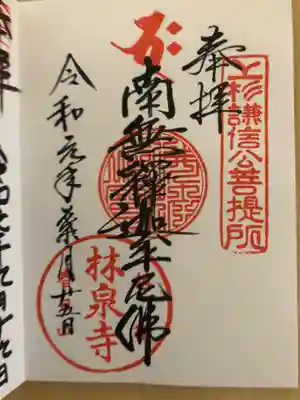 奉拝
上杉謙信公菩提所
南無釋迦牟尼佛
令和元年葉月廿五日
林泉寺